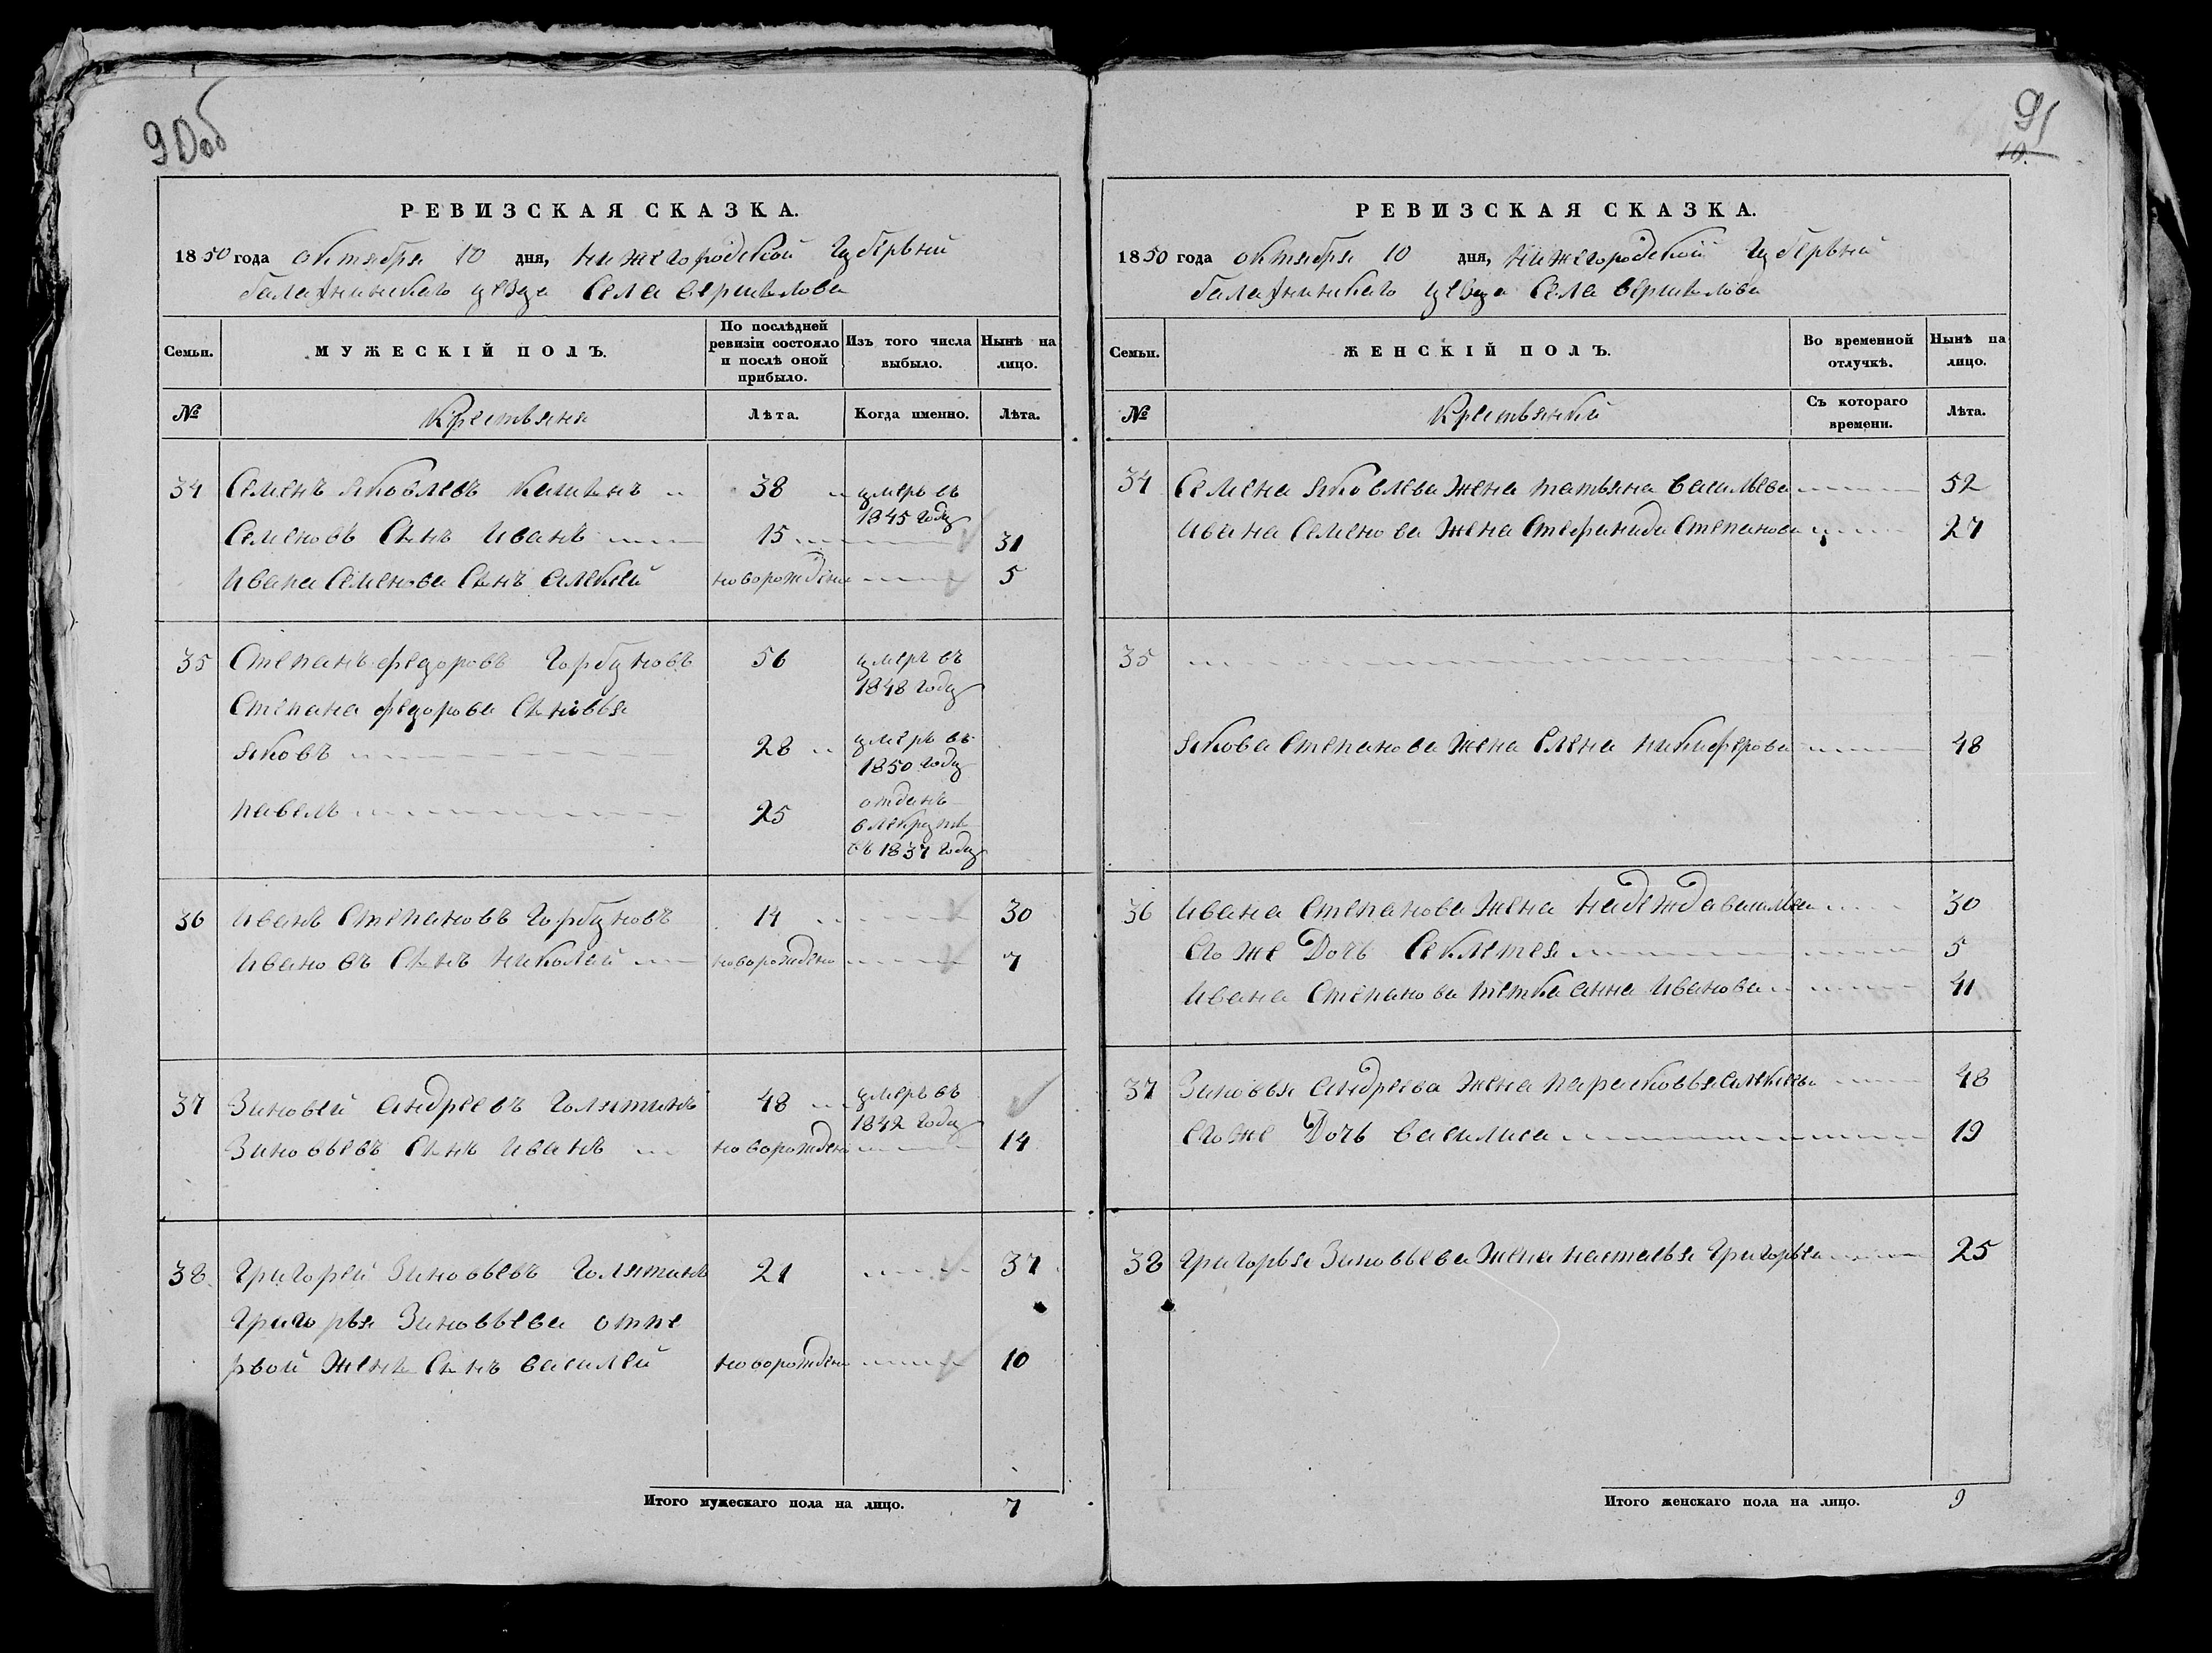 90об
РЕВИЗСКАЯ СКАЗКА.
1850 года октября 10 дня, нижегородской губерьний
балахнинскаго уезда села вершилова
Семьи. МУЖЕСКІЙ ПОЛЪ. По послѣдней ревизіи состояло и послѣ оной прибыло. Изъ того числа выбыло. Нынѣ на лицо.
№ Крестьяня Лѣта. Когда именно. Лѣта.
34 Семенъ яковлевъ 38 умеръ въ 1845 году
Семеновъ Сынъ иванъ 15 31
ивана Семенова Сынъ алексей новорожденъ 5
35 Степанъ федоровъ горбуновъ 56 умеръ въ 1848 году
Степана федорова Сыновья
яковъ 28 умеръ въ 1850 году
павелъ 25 отданъ въ 1837 году
36 иванъ Степановъ горбуновъ 14 30
ивановъ Сынъ николай новорожденъ 7
37 Зиновей андреевъ голятинъ 48 умеръ въ 1842 году
Зиновьевъ Сынъ иванъ новорожденъ 14
38 григорей Зиновьевъ голятинъ 21 37
григорья Зиновьева отпе
рвой жены Сынъ василей новорожденъ 10
Итого мужескаго пола на лицо. 7
91
10.
РЕВИЗСКАЯ СКАЗКА.
1850 года октября 10 дня, нижегородской губерьний
балахнинскаго уезда села вершилова
Семьи. ЖЕНСКІЙ ПОЛЪ. Во временной отлучкѣ. Нынѣ на лицо.
№ Крестьянки Съ котораго времени. Лѣта.
34 Семена яковлева жена татьяна васильева 52
ивана Семенова жена Стефанида Степанова 27
35
якова степанова жена елена никиферова 48
36 ивана степанова жена надежда васильева 30
его же дочь Секлетея 5
ивана Степанова тетка анна иванова 41
37 Зиновья андреева жена парасковья алексеева 48
его же дочь василиса 19
38 григорья Зиновьева жена настасья григорьева 25
Итого женскаго пола на лицо. 9